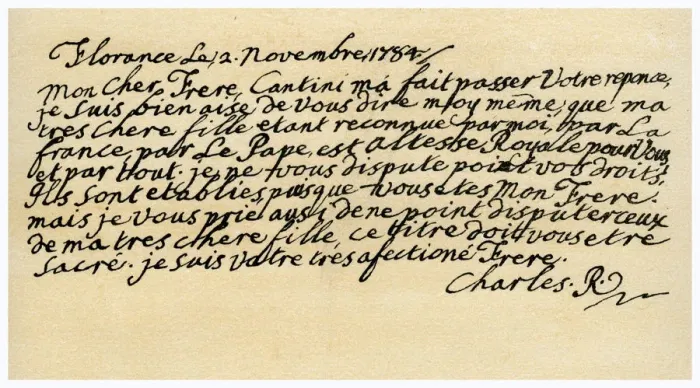 Florance Le, 2. Novembre, 1784
Mon Cher Frere, Cantini ma fait passer Votre reponce,
je suis bien aise de vous dire moy même, que ma
tres chere fille etant reconnue par moi, par La
france par Le Pape, est Altesse Royale pour Vous
et par tout. je ne vous dispute point vos droits,
Ils sont etablies puisque vous etes Mon Frere.
mais je vous prie aussi de ne point disputer ceux
de ma tres chere fille, ce titre doit vous etre
sacré. je suis votre tres afectioné Frere.
Charles. R.